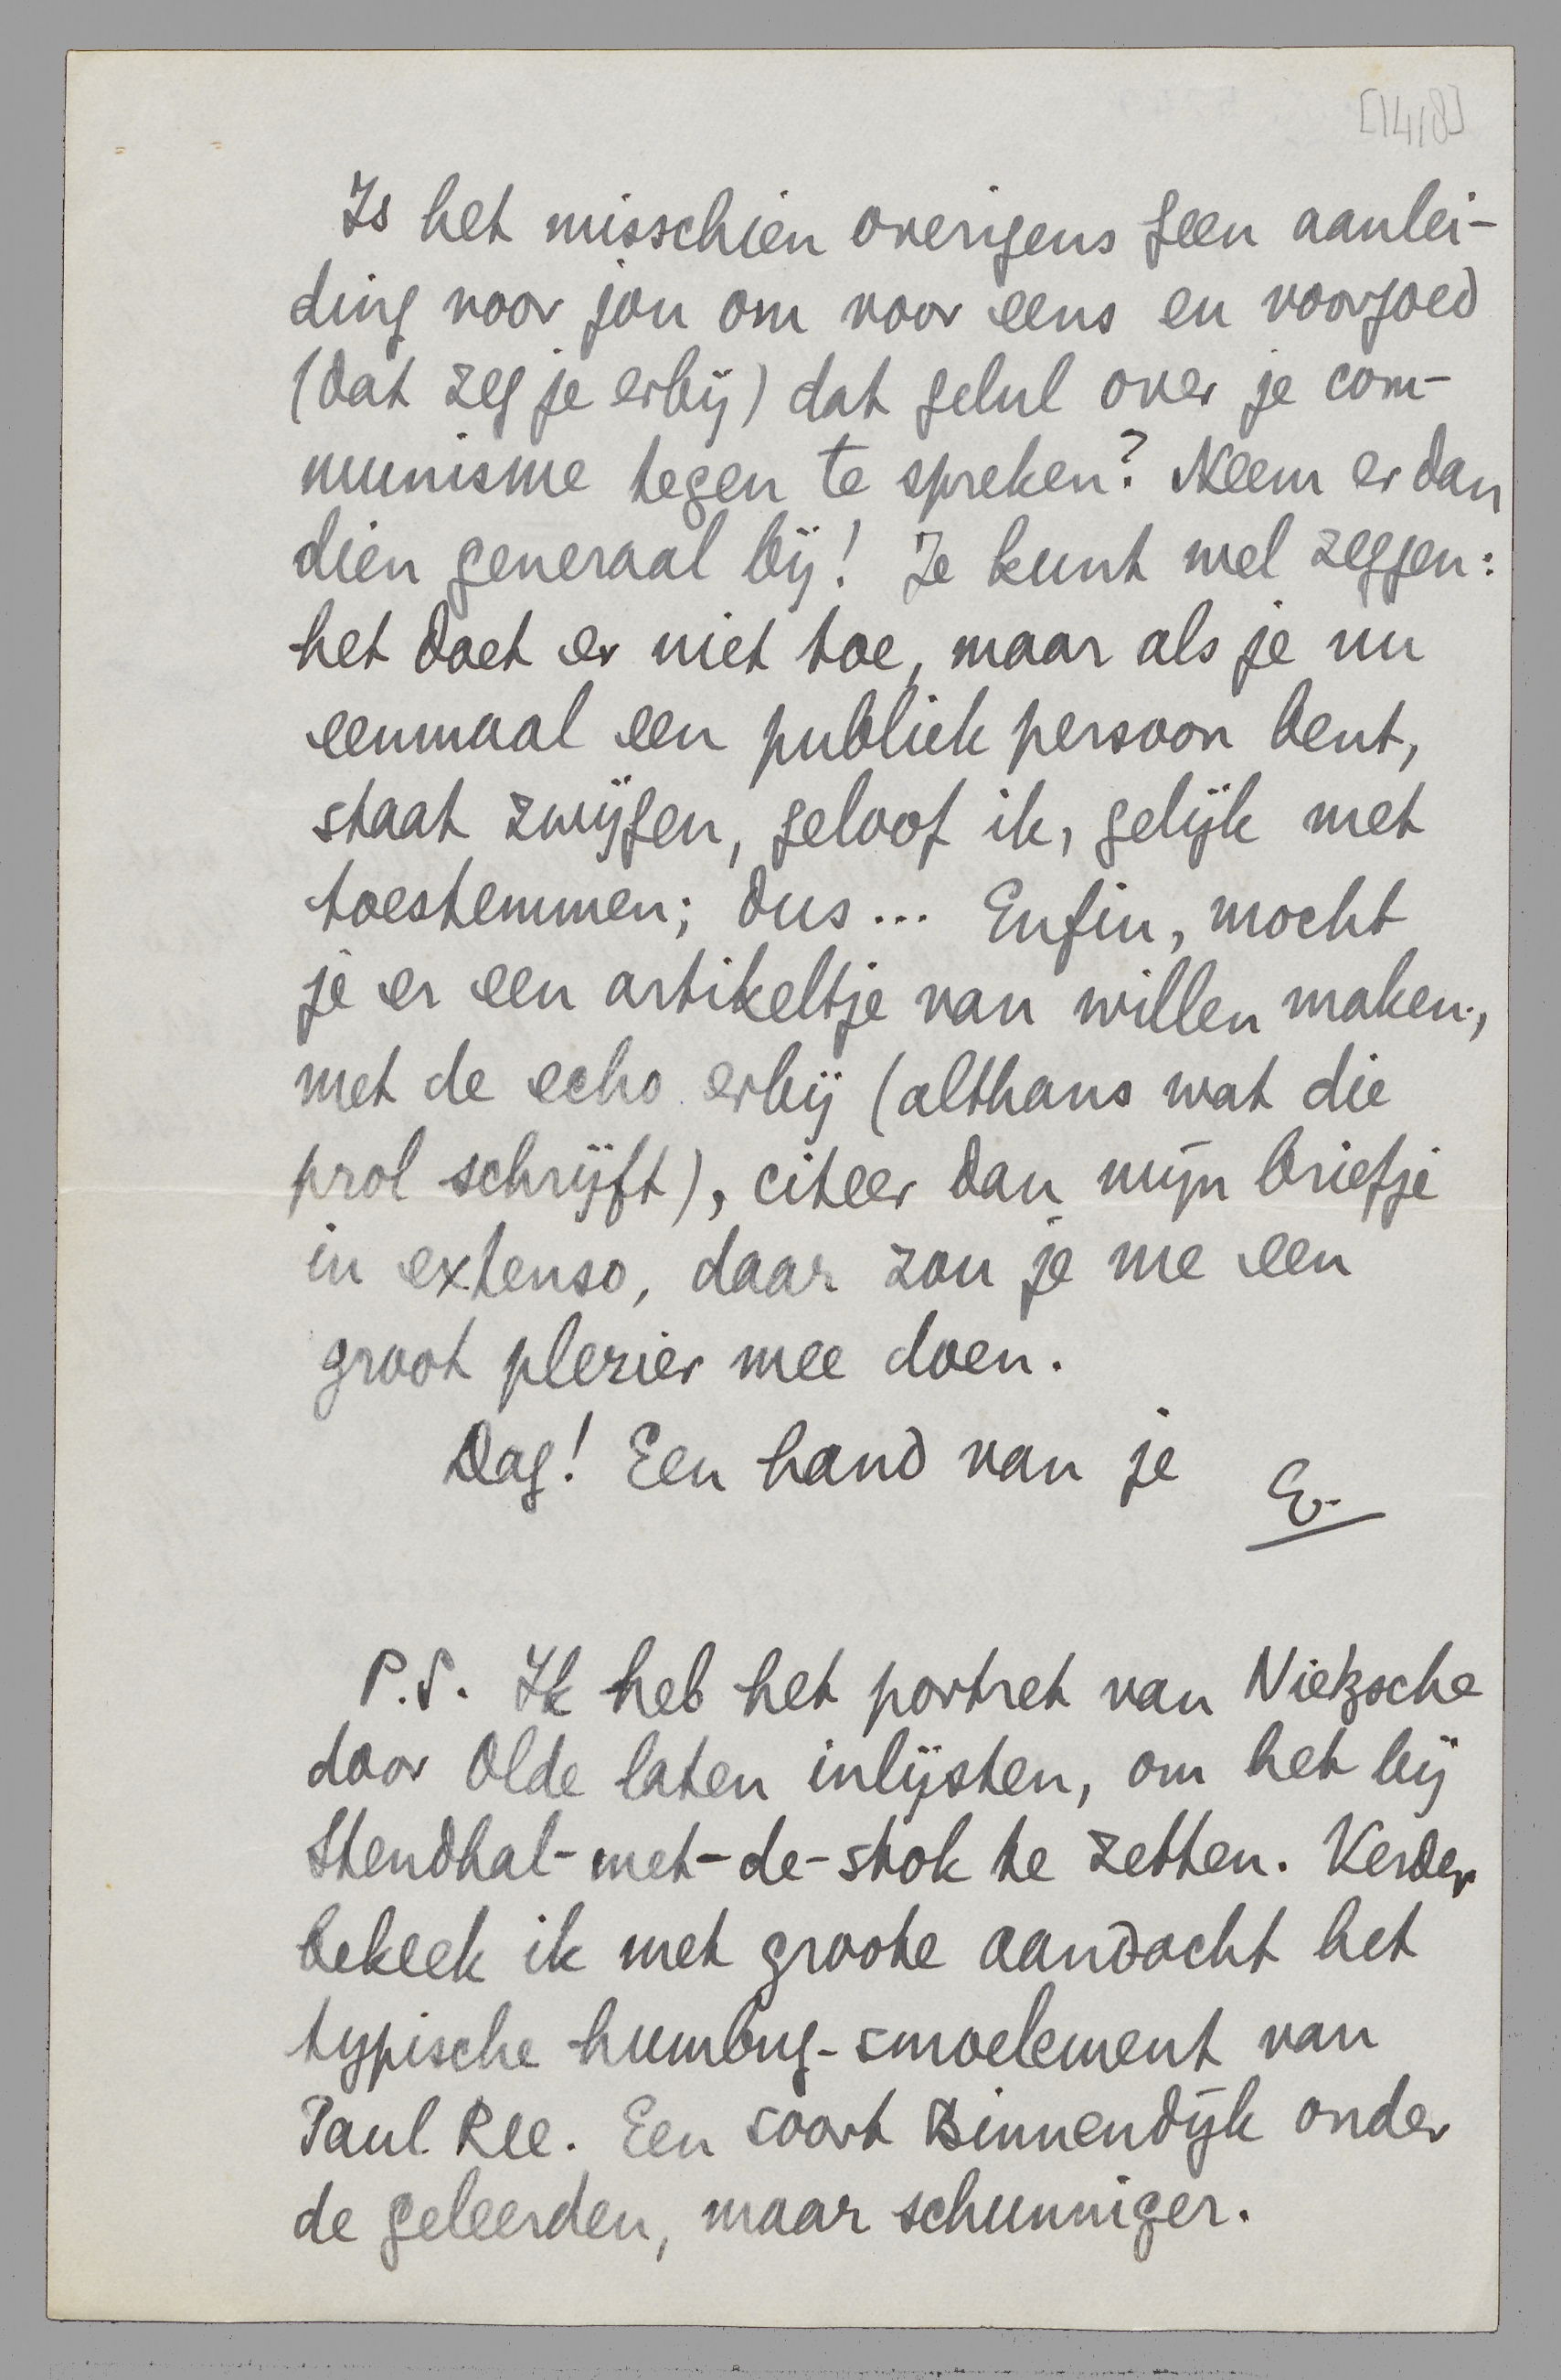 [1418]
Is het misschien overigens geen aanlei-
ding voor jou om voor eens en voorgoed
(dat zeg je erbij) dat gelul over je com-
munisme tegen te spreken? Neem er dan
dien generaal bij! Je kunt wel zeggen:
het doet er niet toe, maar als je nu
eenmaal een publiek persoon bent,
staat zwijgen, geloof ik, gelijk met
toestemmen; dus... Enfin, mocht
je er een artikeltje van willen maken,
met de echo erbij (althans wat die
prol schrijft), citeer dan mijn briefje
in extenso, daar zou je me een
groot plezier mee doen.
Dag! Een hand van je E.
P.S. Ik heb het portret van Nietzsche
door Olde laten inlijsten, om het bij
Stendhal-met-de-stok te zetten. Verder
bekeek ik met groote aandacht het
typische humbug-smoelement van
Paul Ree. Een soort Binnendijk onder
de geleerden, maar schunniger.